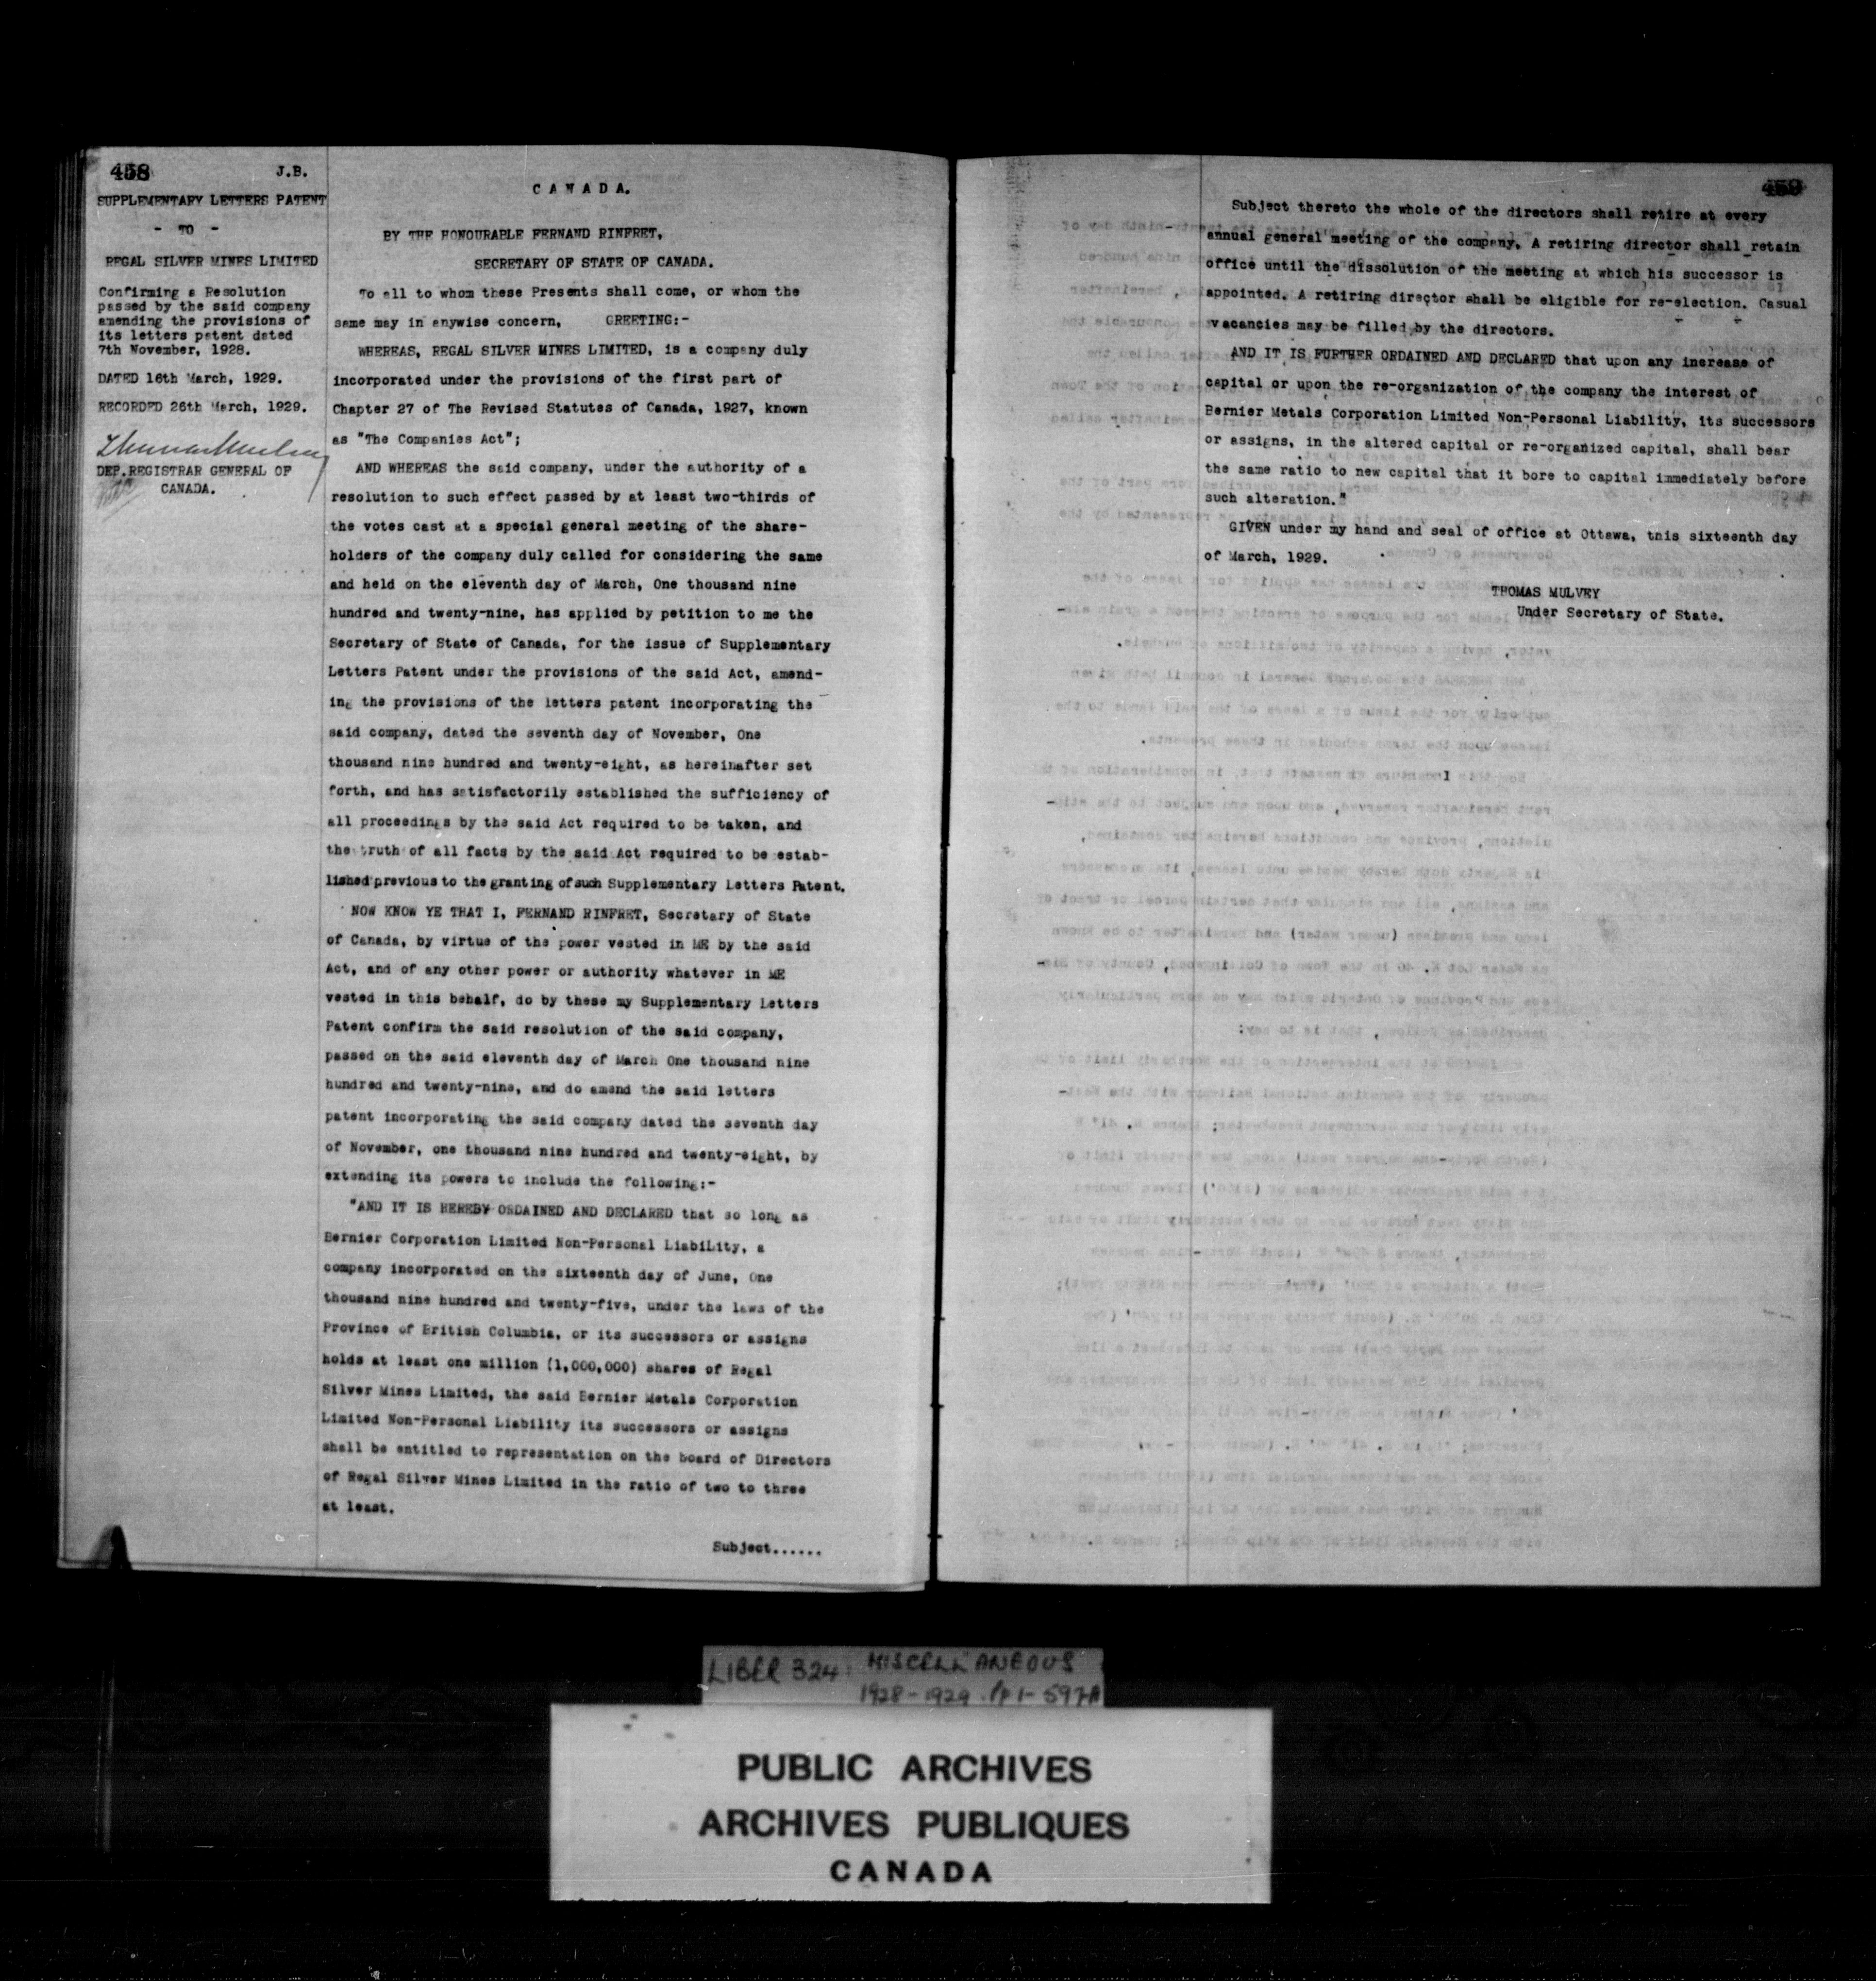 458
J.B.
SUPPLEMENTARY LETTERS PATENT
- TO -
REGAL SILVER MINES LIMITED
Confirming a Resolution
passed by the said company
amending the provisions of
its letters patent dated
7th November, 1928.
DATED 16th March, 1929.
RECORDED 26th March, 1929.
DEP. REGISTRAR GENERAL OF
CANADA.
C A N A D A.
BY THE HONOURABLE FERNAND RINFRET,
SECRETARY OF STATE OF CANADA.
To all to whom these Presents shall come, or whom the
same may in anywise concern, GREETING:-
WHEREAS, REGAL SILVER MINES LIMITED, is a company duly
incorporated under the provisions of the first part of
Chapter 27 of The Revised Statutes of Canada, 1927, known
as "The Companies Act";
AND WHEREAS the said company, under the authority of a
resolution to such effect passed by at least two-thirds of
the votes cast at a special general meeting of the share-
holders of the company duly called for considering the same
and held on the eleventh day of March, One thousand nine
hundred and twenty-nine, has applied by petition to me the
Secretary of State of Canada, for the issue of Supplementary
Letters Patent under the provisions of the said Act, amend-
ing the provisions of the letters patent incorporating the
said company, dated the seventh day of November, One
thousand nine hundred and twenty-eight, as hereinafter set
forth, and has satisfactorily established the sufficiency of
all proceedings by the said Act required to be taken, and
the truth of all facts by the said Act required to be estab-
lished previous to the granting of such Supplementary Letters Patent.
NOW KNOW YE THAT I, FERNAND RINFRET, Secretary of State
of Canada, by virtue of the power vested in ME by the said
Act, and of any other power or authority whatever in ME
vested in this behalf, do by these my Supplementary Letters
Patent confirm the said resolution of the said company,
passed on the said eleventh day of March One thousand nine
hundred and twenty-nine, and do amend the said letters
patent incorporating the said company dated the seventh day
of November, one thousand nine hundred and twenty-eight, by
extending its powers to include the following:-
"AND IT IS HEREBY ORDAINED AND DECLARED that so long as
Bernier Corporation Limited Non-Personal LiabiLity, a
company incorporated on the sixteenth day of June, One
thousand nine hundred and twenty-five, under the laws of the
Province of British Columbia, or its successors or assigns
holds at least one million (1,000,000) shares of Regal
Silver Mines Limited, the said Bernier Metals Corporation
Limited Non-Personal Liability its successors or assigns
shall be entitled to representation on the board of Directors
of Regal Silver Mines Limited in the ratio of two to three
at least.
Subject......
459
Subject thereto the whole of the directors shall retire at every
annual general meeting of the company. A retiring director shall retain
office until the dissolution of the meeting at which his successor is
appointed. A retiring director shall be eligible for re-election. Casual
vacancies may be filled by the directors.
AND IT IS FURTHER ORDAINED AND DECLARED that upon any increase of
capital or upon the re-organization of the company the interest of
Bernier Metals Corporation Limited Non-Personal Liability, its successors
or assigns, in the altered capital or re-organized capital, shall bear
the same ratio to new capital that it bore to capital immediately before
such alteration."
GIVEN under my hand and seal of office at Ottawa, this sixteenth day
of March, 1929.
THOMAS MULVEY
Under Secretary of State.
LIBER 324: MISCELLANEOUS
1928-1929 pp 1-597A
PUBLIC ARCHIVES
ARCHIVES PUBLIQUES
CANADA